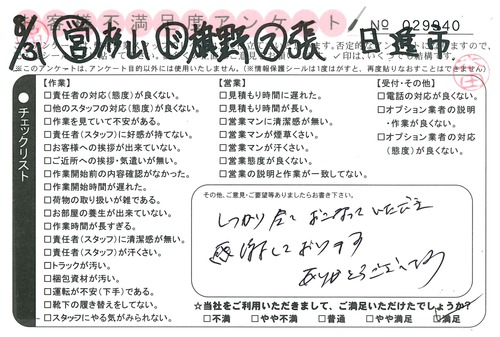 お客様不満足度アンケート
No 029940
8/31 営 杉山 ド 旗野 ス 張 日進市
※このアンケートは、アンケート目的以外には使用いたしません。(※情報保護シールは1度はがすと、再度貼りなおすことはできません)
チェックリスト
【作業】
□責任者の対応(態度)が良くない。
□他のスタッフの対応(態度)が良くない。
□作業を見ていて不安がある。
□責任者(スタッフ)に好感が持てない。
□お客様への挨拶が出来ていない。
□ご近所への挨拶・気遣いが無い。
□作業開始前の内容確認がなかった。
□作業開始時間が遅れた。
□荷物の取り扱いが雑である。
□お部屋の養生が出来ていない。
□作業時間が長すぎる。
□責任者(スタッフ)に清潔感が無い。
□責任者(スタッフ)が汗くさい。
□トラックが汚い。
□梱包資材が汚い。
□運転が不安(下手)である。
□靴下の履き替えをしてない。
□スタッフにやる気がみられない。
【営業】
□見積もり時間に遅れた。
□見積もり時間が長い。
□営業マンに清潔感が無い。
□営業マンが煙草くさい。
□営業マンが汗くさい。
□営業態度が良くない。
□営業の説明と作業が一致してない。
【受付・その他】
□電話の対応が良くない。
□オプション業者の説明
・作業が良くない。
□オプション業者の対応
(態度)が良くない。
その他、ご意見・ご要望等ありましたらお書き下さい。
しっかり全ておこなっていただき
感謝しております
ありがとうございます
☆当社をご利用いただきまして、ご満足いただけたでしょうか?
□不満 □やや不満 □普通 □やや満足 □満足